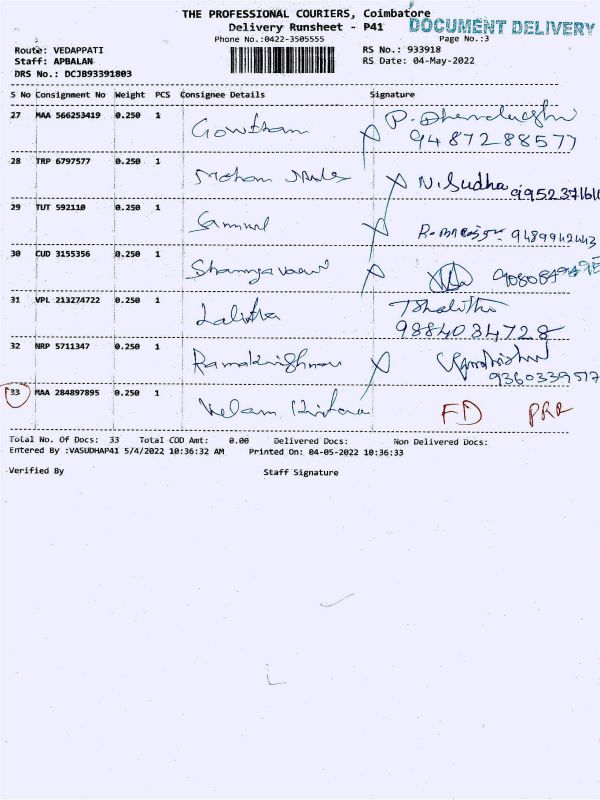 THE PROFESSIONAL COURIERS, Coimbatore
DOCUMENT DELIVERY
Delivery Runsheet - P41
Phone No.:0422-3505555
Page No.:3
Route: VEDAPPATI
RS No.: 933918
Staff: APBALAN
RS Date: 04-May-2022
DRS No.: DCJB93391803
S No Consignment No Weight PCS Consignee Details Signature
27 MAA 566253419 0.250 1 Gowtham
9487288577
28 TRP 6797577 0.250 1 Mohan N. Sudha
29 TUT 592110 0.250 1 Samuel 9489942443
30 CUD 3155356 0.250 1
31 VPL 213274722 0.250 1 Lalitha T Shalitha
9884034728
32 NRP 5711347 0.250 1 Ramakrishnan
9360339517
33 MAA 284897895 0.250 1 FD
Total No. Of Docs: 33 Total COD Amt: 0.00 Delivered Docs: Non Delivered Docs:
Entered By :VASUDHAP41 5/4/2022 10:36:32 AM Printed On: 04-05-2022 10:36:33
Verified By Staff Signature